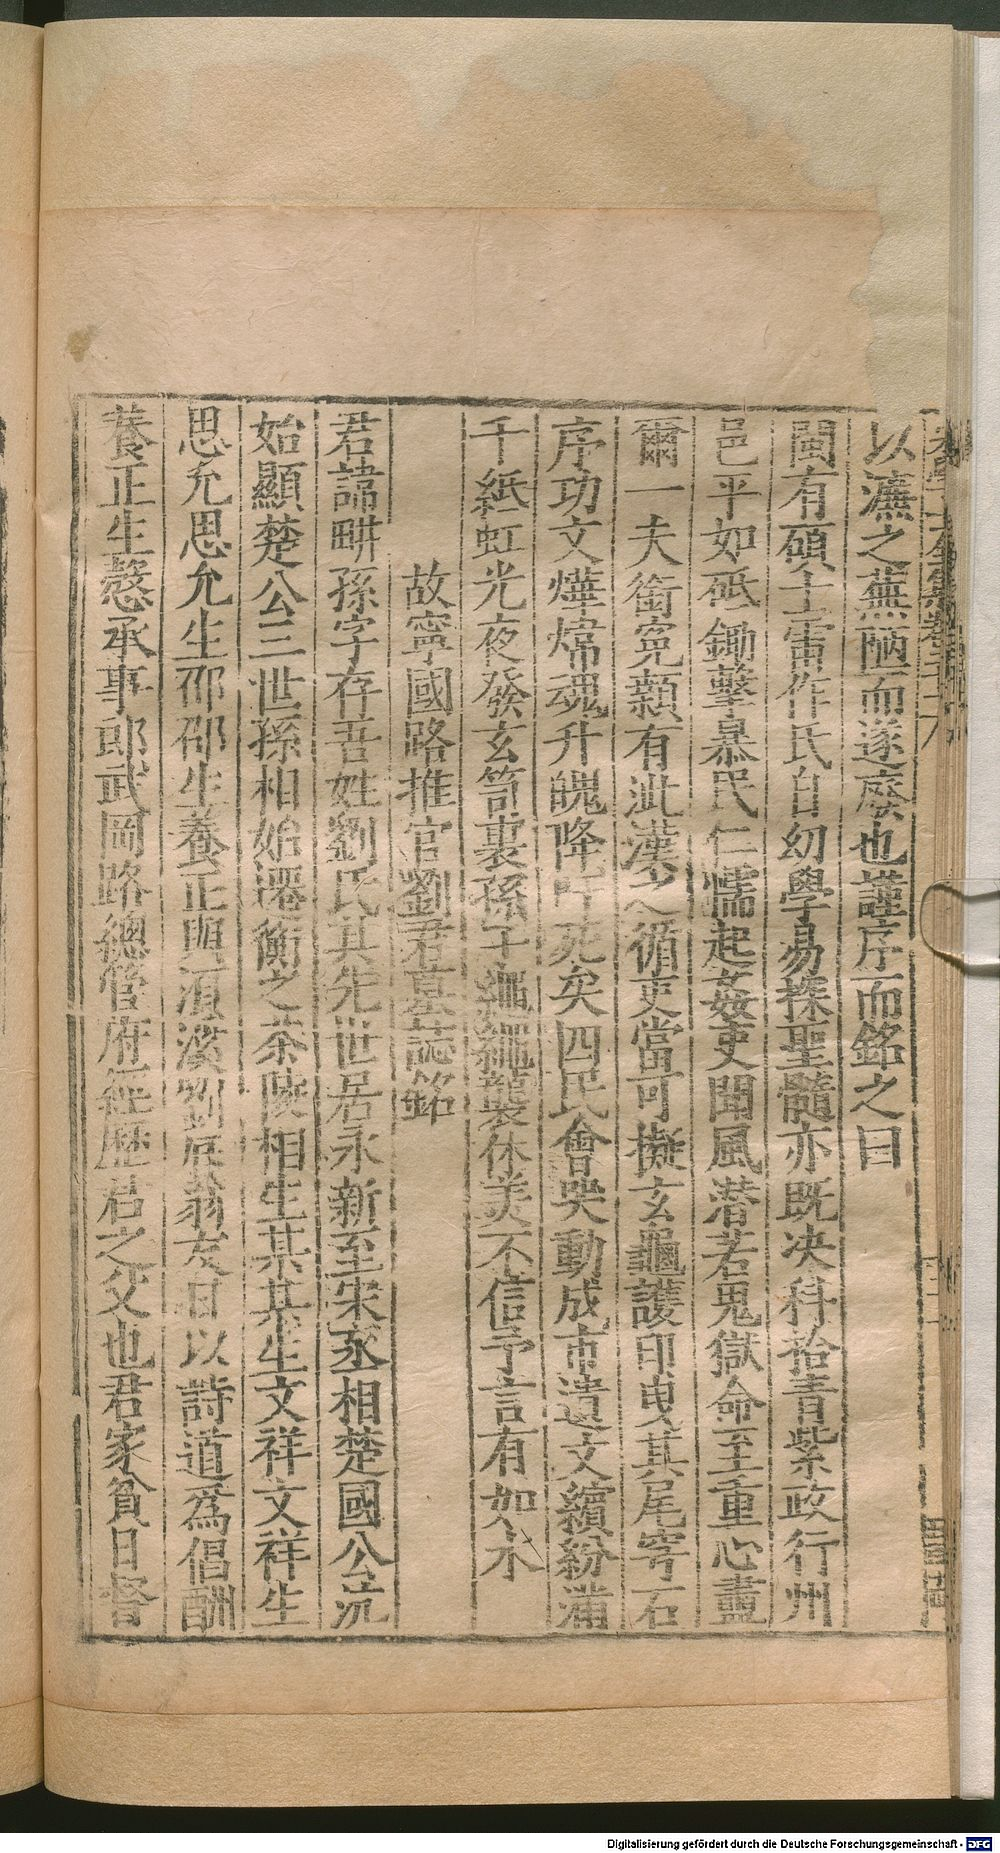 以濂之蕪陋而遂廢也謹序而銘之曰
閩有碩士雷作氏自幼學易探聖髓亦既决科拾青紫政行州
邑平如砥鋤孽㬥民仁懦起姦吏聞風潜若鬼獄命至重心盡
爾一夫銜寃顙有泚漢之循吏當可擬玄龜護印曳其尾寄石
序功文燁煒魂升魄降吁死矣四民會哭動成市遺文繽紛滿
千紙虹光夜發玄笥裏孫子繩繩襲休美不信予言有如水
故寧國路推官劉君墓誌銘
君諱畊孫字存吾姓劉氏其先世居永新至宋丞相楚國公沆
始顯楚公三世孫相始遷衡之茶陵相生某某生文祥文祥生
思允思允生邵邵生養正與湏溪劉辰翁友日以詩道爲倡酬
養正生愨承事郎武岡路總管府經歷君之父也君家貧日督
Digitalisierung gefördert durch die Deutsche Forschungsgemeinschaft - DFG